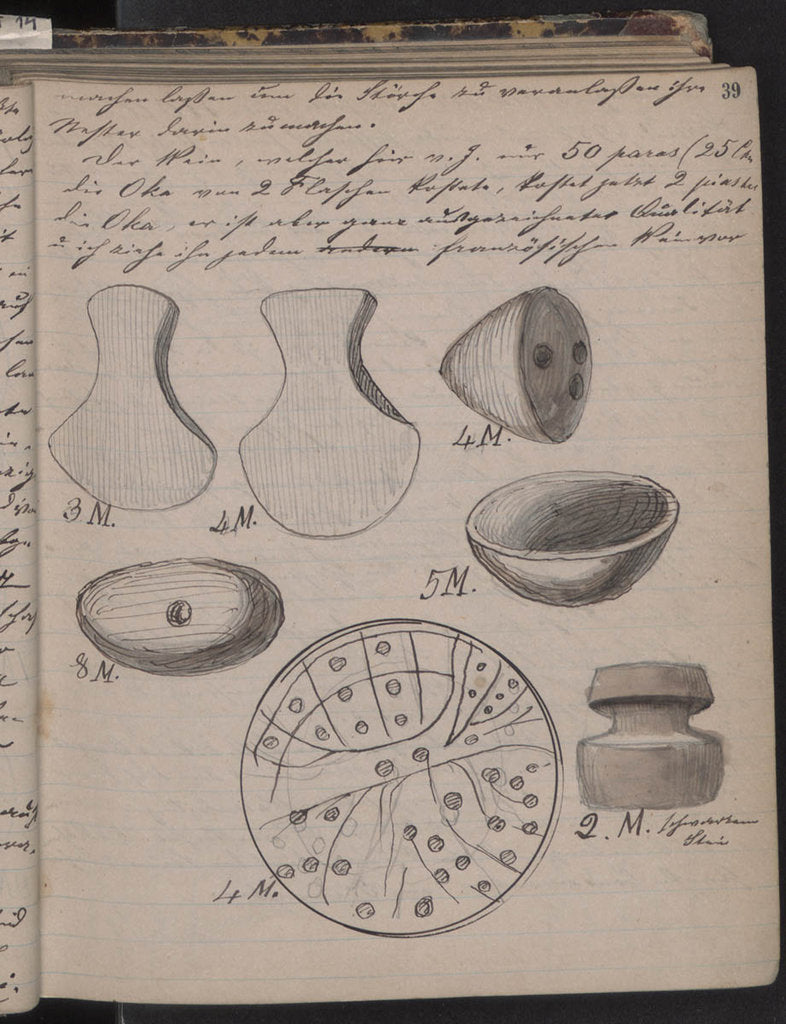 39
machen laßen um die Störche zu veranlaßen ihre
Nester darin zu machen.
Der Wein, welcher hier v. J. nur 50 paras (25 Cts
die Oka von 2 Flaschen kostete, kostet jetzt 2 piaster
die Oka, er ist aber ganz ausgezeichneter Qualität
u ich ziehe ihn jedem andern französischen Wein vor
3 M.
4 M.
4 M.
5 M.
8 M.
4 M.
2. M. schwarzem
Stein